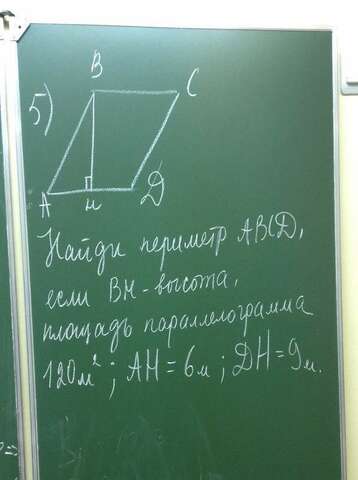 5)
B
C
A
H
D
Найди периметр ABCD,
если BH - высота,
площадь параллелограмма
120м²; AH = 6м; DH = 9м.